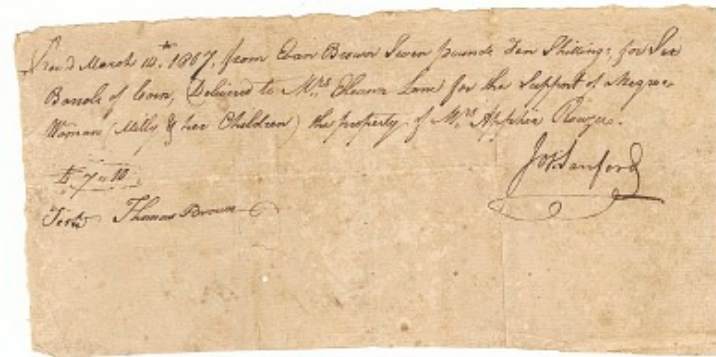 Rec'd March 14th. 1807, from Evan Brown Seven pounds Ten Shillings, for Six
Barrels of Corn, Delivered to Mrs Eleanor Lane for the Support of Negroe
Woman (Milly & her Children) the property of Mrs Apphia Rouzee.
£ 7 " 10
Teste Thomas Brown
Sanford